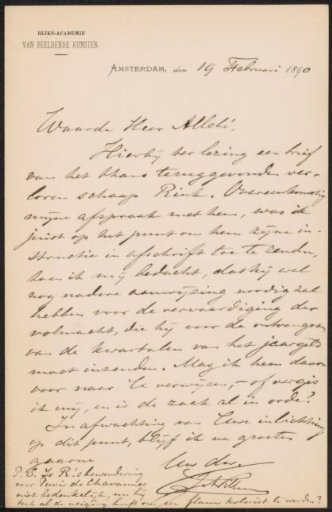 RIJKS-ACADEMIE
VAN BEELDENDE KUNSTEN.
AMSTERDAM, den 19 Februari 1890
Waarde Heer Allebé,
Hierbij ter lezing een brief
van het thans teruggevonden ver-
loren schaap Rink. Overeenkomstig
mijne afspraak met hem, was ik
juist op het punt om hem zijne in-
structie in afschrift toe te zenden,
toen ik mij bedacht, dat hij wel
nog nadere aanwijzing noodig zal
hebben voor de vervaardiging der
volmacht, die hij voor de ontvangst
van de kwartalen van het jaargeld
moet inzenden. Mag ik hem daar
voor naar U verwijzen, - of vergis
ik mij, en is de zaak al in orde?
In afwachting van Uwe inlichting
op dit punt, blijf ik na groeten
gaarne
Uw dw
P.S. Is Rinks bewondering
voor Puvis de Chavannes
niet bedenkelijk, nu hij
toch al de neiging heeft om een flauw kolorist te worden?